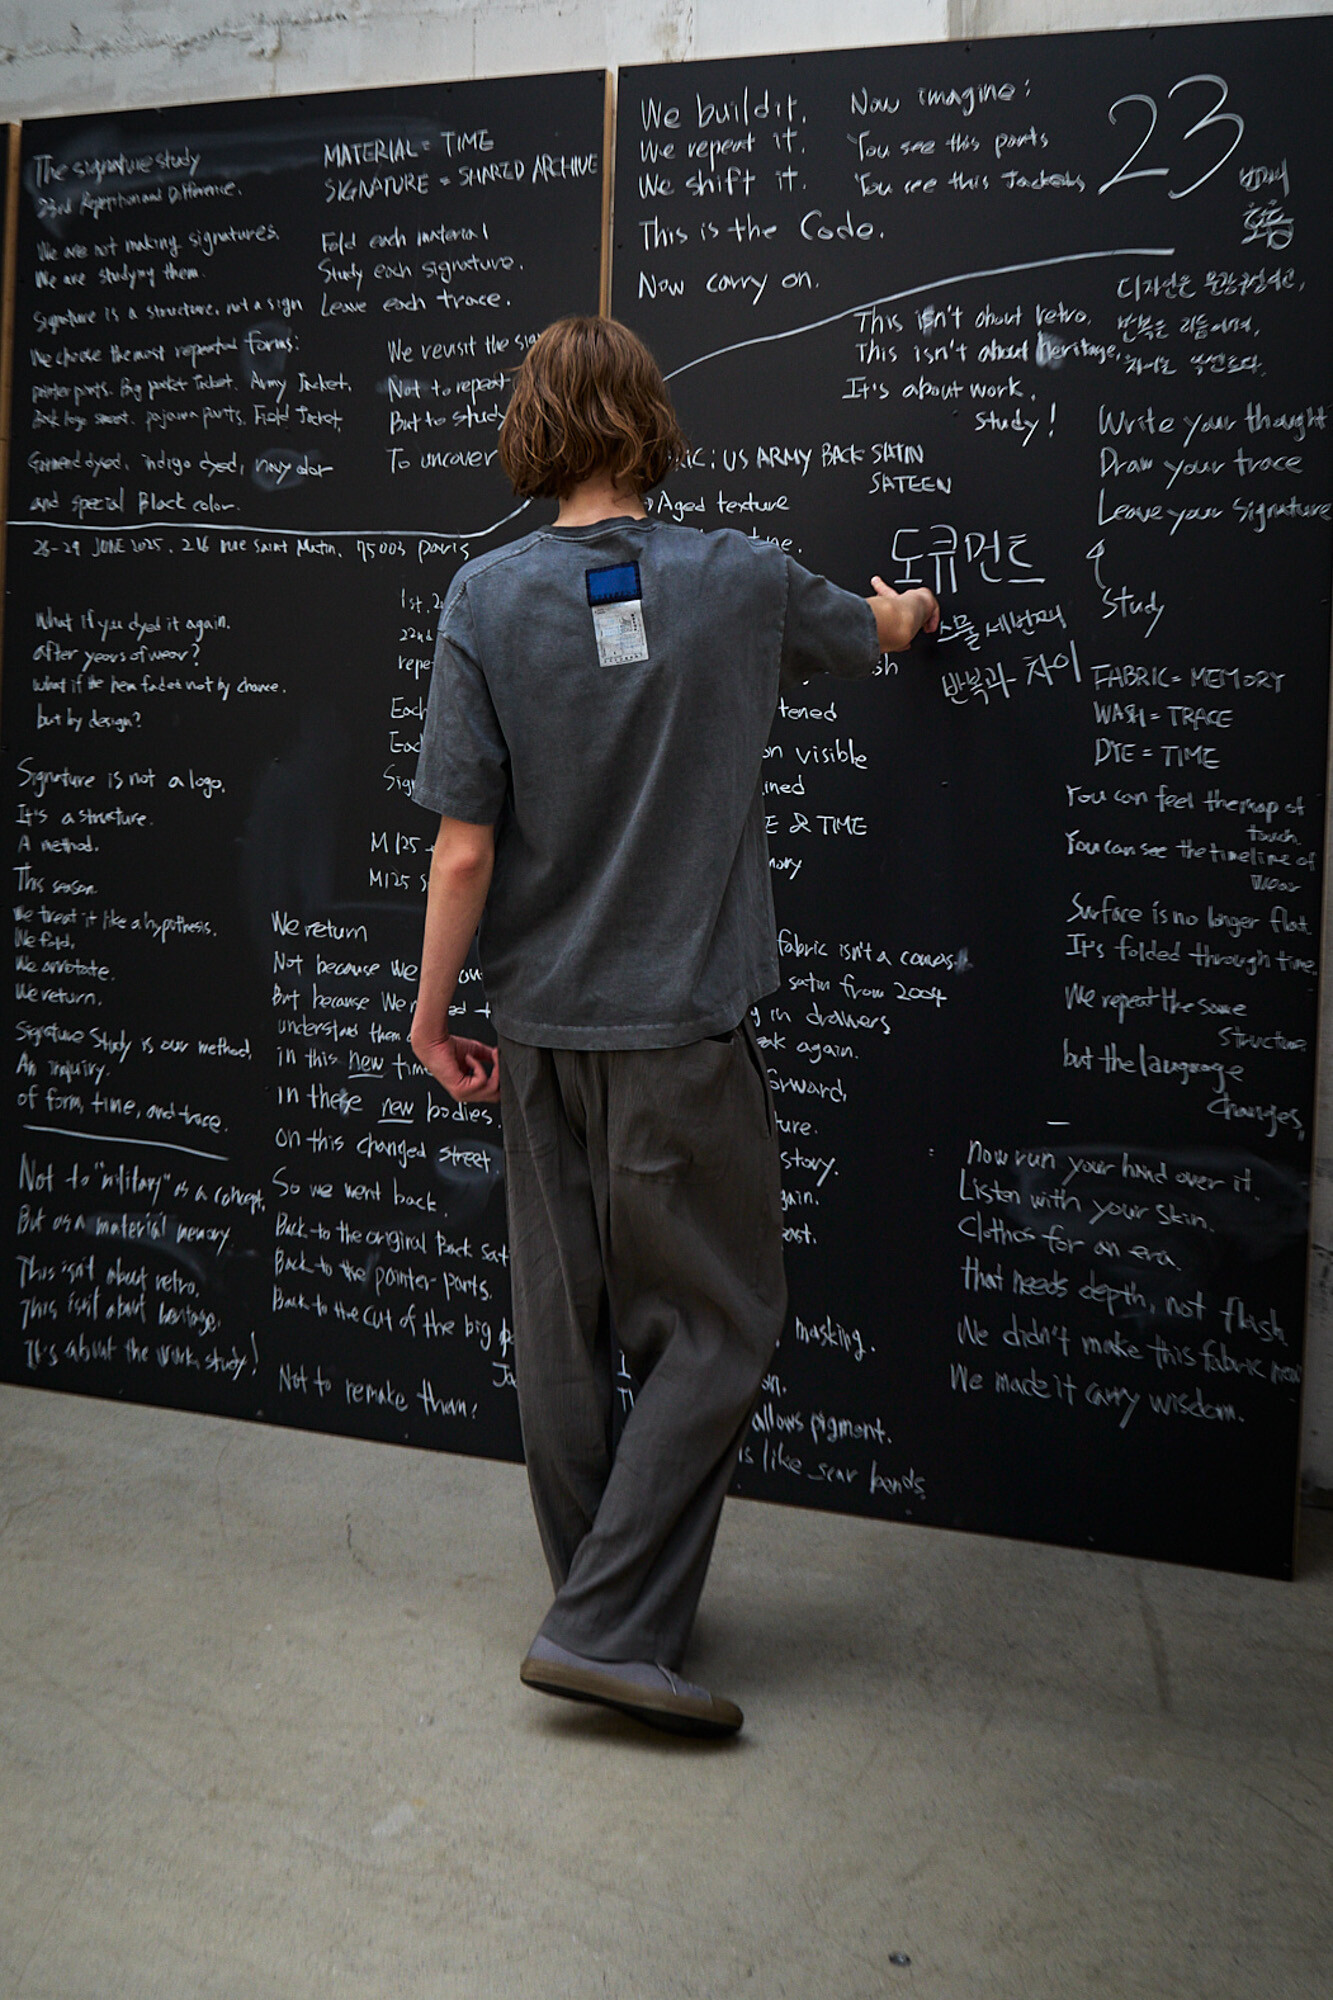 The signature study
23rd Repetition and Difference.
We are not making signatures.
We are studying them.
Signature is a structure, not a sign
We choose the most repeated forms:
painter pants. Big pocket Jacket. Army Jacket.
pajama pants. Field Jacket,
Garment dyed, indigo dyed, navy color
and special Black color.
MATERIAL = TIME
SIGNATURE = SHARED ARCHIVE
Fold each material
Study each signature.
Leave each trace.
We revisit the
Not to repeat
But to study
To uncover
26-29 JUNE 2025. 216 rue Saint Martin, 75003 paris
What if you dyed it again.
after years of wear?
what if the hem faded not by chance.
but by design?
Signature is not a logo.
It's a structure.
A method.
This season.
We treat it like a hypothesis.
We fold,
We annotate.
We return.
Signature Study is our method.
An inquiry.
of form, time, and trace.
Not to "military" as a concept,
But as a material memory
This isn't about retro.
This isn't about heritage.
It's about the work, study!
1st.
22nd
repe
Each
Eac
Sig
M125
M125 S
We return
Not because we
But because We
understand them
in this new
in these new bodies.
on this changed street.
So we went back.
Back to the original Back
Back to the painter pants.
Back to the cut of the big
Not to remake them!
We build it.
We repeat it.
We shift it.
This is the Code.
Now carry on.
Now imagine:
You see this pants
You see this Jackets
23
번째
This isn't about retro.
This isn't about heritage,
It's about work.
study!
디자인은
반복은 리듬이며,
차이는
Write your thought
Draw your trace
Leave your Signature
Study
: US ARMY BACK SATIN
SATEEN
Aged texture
도큐먼트
스물 세번째
반복과 차이
FABRIC = MEMORY
WASH = TRACE
DYE = TIME
tened
on visible
ined
E & TIME
You can feel the map of
touch.
You can see the timeline of
Wear
Surface is no longer flat
It's folded through time.
We repeat the same
Structure
but the language
Changes,
fabric isn't a
satin from 2004
in drawers
again.
orward,
ure.
story.
gain.
masking.
allows pigment.
is like
now run your hand over it.
Listen with your skin.
Clothes for an era
that needs depth, not flash
We didn't make this fabric new
We made it carry wisdom.